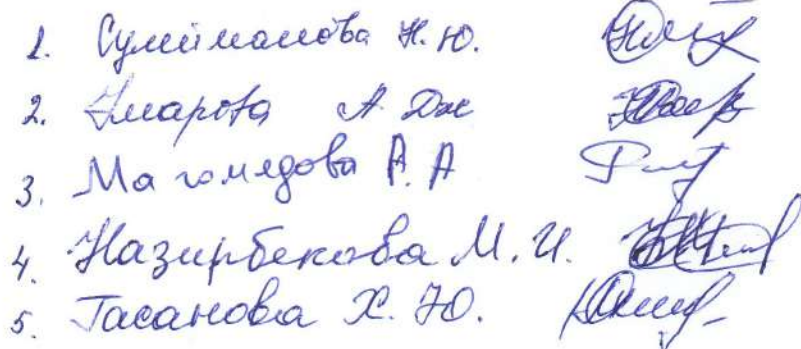 1. Сулейманова Н.Ю.
2. Умарова А. Дж
3. Магомедова Р. А
4. Назирбекова М. И.
5. Гасанова Х. Ю.